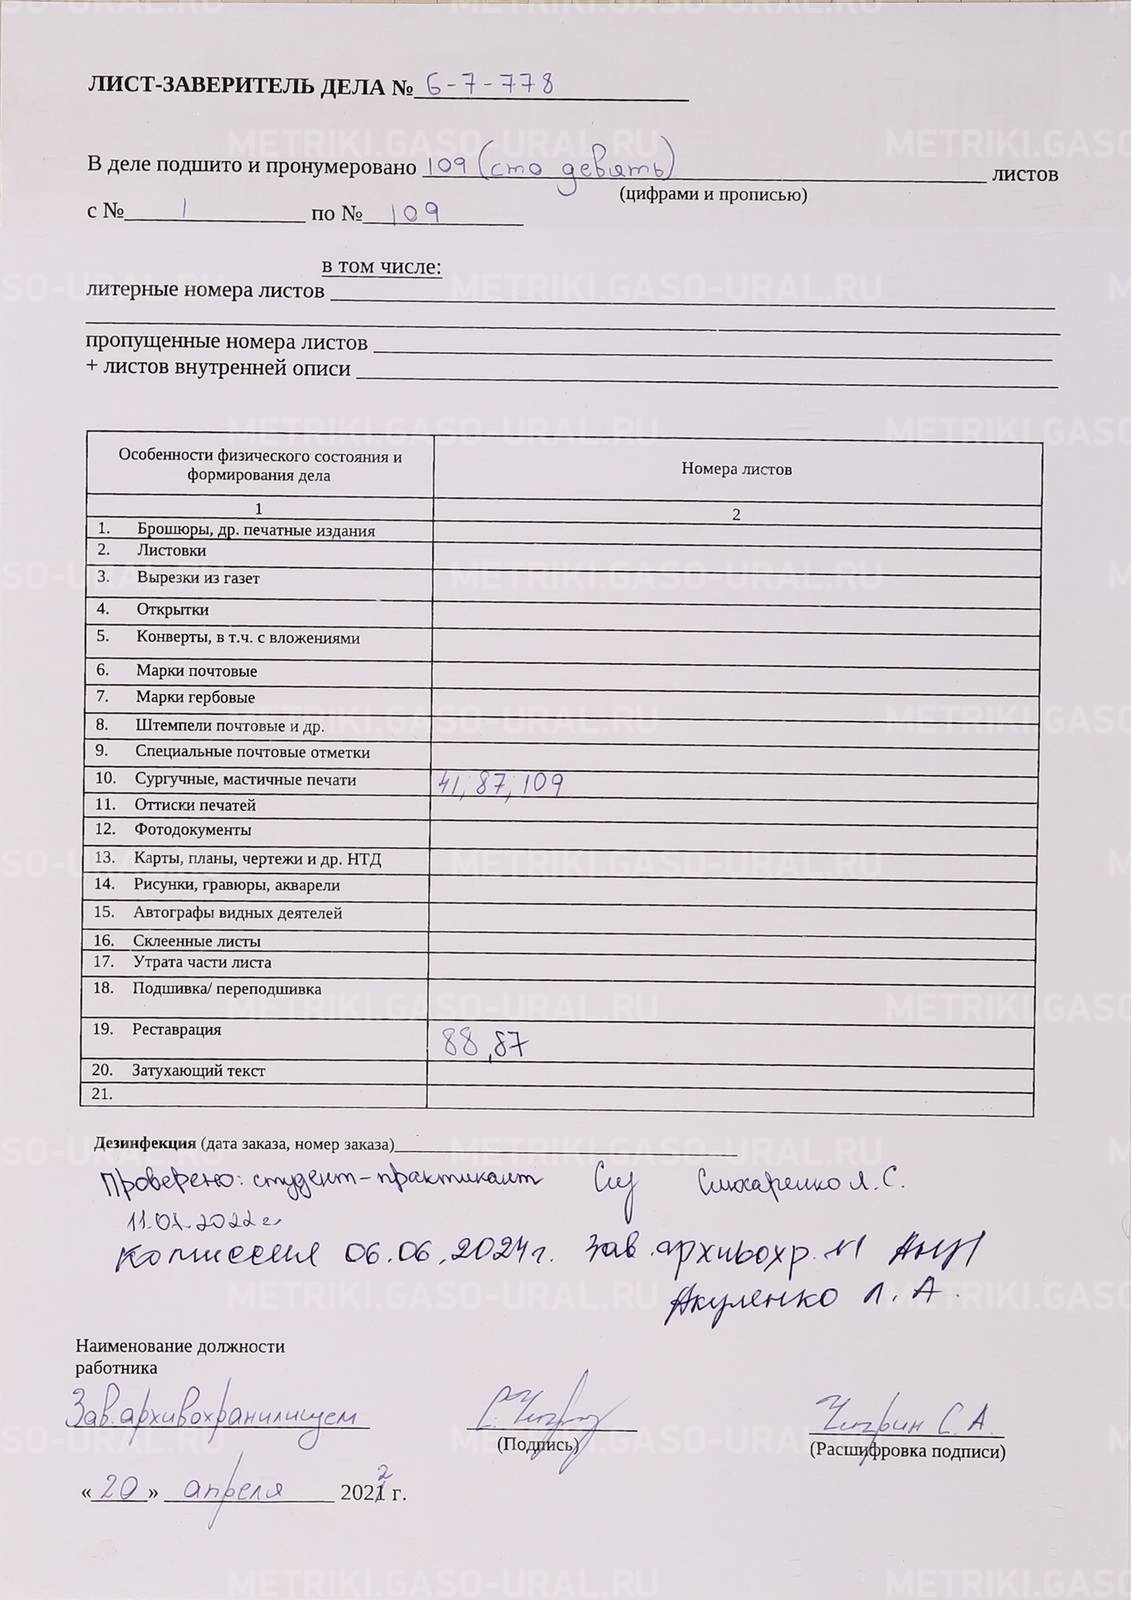 ЛИСТ-ЗАВЕРИТЕЛЬ ДЕЛА № 6-7-778
В деле подшито и пронумеровано 109 (сто девять) листов
(цифрами и прописью)
с № 1 по № 109
в том числе:
литерные номера листов
пропущенные номера листов
+ листов внутренней описи
Особенности физического состояния и формирования дела
Номера листов
1
2
1. Брошюры, др. печатные издания
2. Листовки
3. Вырезки из газет
4. Открытки
5. Конверты, в т.ч. с вложениями
6. Марки почтовые
7. Марки гербовые
8. Штемпели почтовые и др.
9. Специальные почтовые отметки
10. Сургучные, мастичные печати 41, 87, 109
11. Оттиски печатей
12. Фотодокументы
13. Карты, планы, чертежи и др. НТД
14. Рисунки, гравюры, акварели
15. Автографы видных деятелей
16. Склеенные листы
17. Утрата части листа
18. Подшивка/ переподшивка
19. Реставрация 88, 87
20. Затухающий текст
21.
Дезинфекция (дата заказа, номер заказа)
Проверено: студент-практикант
Комиссия 06.06.2024г. Зав. архивохр. №1
Акуленко Л. А.
Наименование должности
работника
Зав.архивохранилищем
(Подпись)
Чигрин С.А.
(Расшифровка подписи)
«20» апреля 2022 г.
METRIKI.GASO-URAL.RU